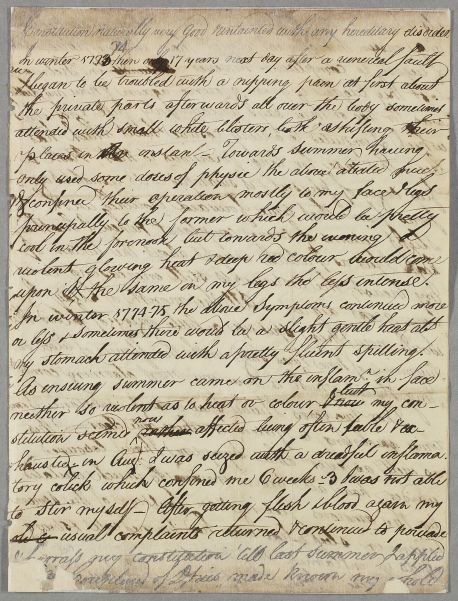 Constitution naturally very Good untainted with any hereditary disorder
In winter 1773/4 then 17 years next day after a venereal fault
I began to be troubled with a nipping pain at first about
the private parts afterwards all over the body sometimes
attended with small white blisters both shifting their
places in an instant – Towards summer having
only used some doses of physic the above stated
confined their operation mostly to my face & legs
principally to the former which would be pretty
cool in the forenoon but towards the evening a
violent glowing heat & deep red colour would come
upon it the same in my legs tho less intense.
In winter 1774-75 the above Symptoms continued more
or less & sometimes there would be a slight gentle heat abt
my stomach attended with a pretty fluent spitting.
As ensuing summer came on the inflamn in face
neither so violent as to heat or colour but my con
stitution seemed now affected being often feeble & ex-
hausted in Augt I was seized with a dreadful inflama
tory colick which confined me 6 weeks 3 I was not able
to stir myself – After getting flesh & blood again my
usual complaints returned & continued to pervade
& harrass my constitution till last summer I applied
made known my whole